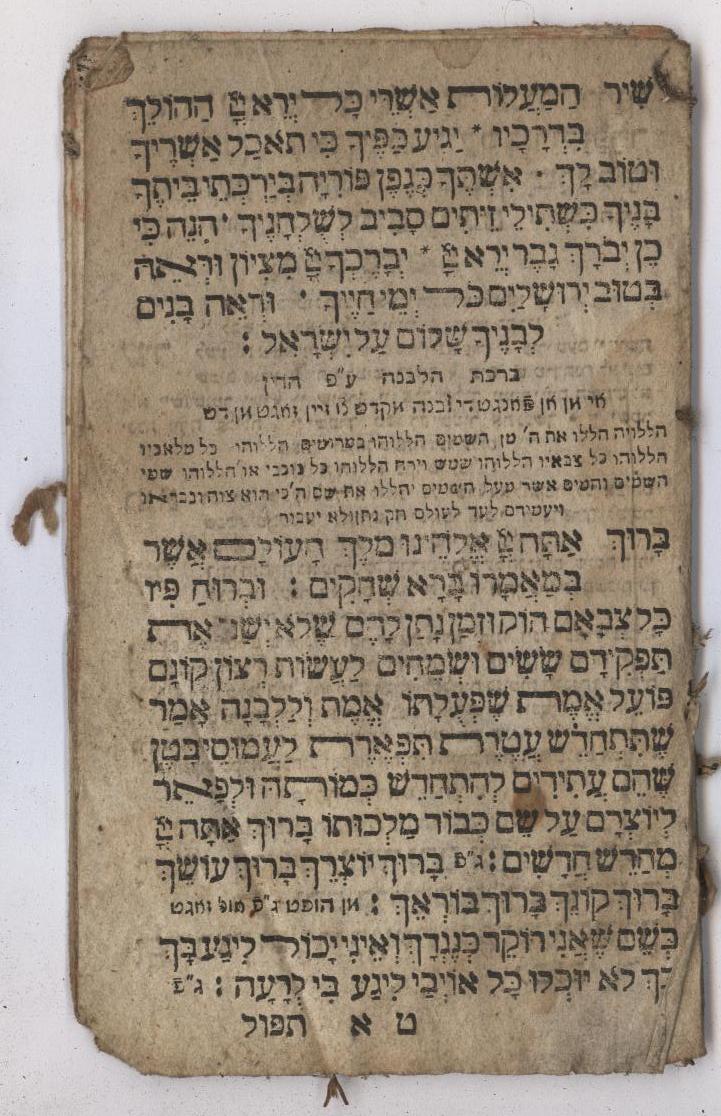 שִׁיר הַמַּעֲלוֹת אַשְׁרֵי כָּל יְרֵא יְיָ הַהוֹלֵךְ
בִּדְרָכָיו * יְגִיעַ כַּפֶּיךָ כִּי תֹאכַל אַשְׁרֶיךָ
וְטוֹב לָךְ · אֶשְׁתְּךָ כְּגֶפֶן פּוֹרִיָּה בְּיַרְכְּתֵי בֵיתֶךָ
בָּנֶיךָ כִּשְׁתִילֵי זֵיתִים סָבִיב לְשֻׁלְחָנֶךָ · הִנֵּה כִּי
כֵן יְבֹרַךְ גָּבֶר יְרֵא יְיָ * יְבָרֶכְךָ יְיָ מִצִּיּוֹן וּרְאֵה
בְּטוּב יְרוּשָׁלַיִם כֹּל יְמֵי חַיֶּיךָ · וּרְאֵה בָּנִים
לְבָנֶיךָ שָׁלוֹם עַל יִשְׂרָאֵל :
ברכת הלבנה ע"פ הדין
מן פאנגט די לבנה מקדש צו זיין זאגט מן דש
הללויה הללו את ה' מן השמים הללוהו במרומים הללוהו כל מלאכיו
הללוהו כל צבאיו הללוהו שמש וירח הללוהו כל כוכבי אור הללוהו שמי
השמים והמים אשר מעל השמים יהללו את שם ה' כי הוא צוה ונבראו
ויעמידם לעד לעולם חק נתן ולא יעבור
בָּרוּךְ אַתָּה יְיָ אֱלֹהֵינוּ מֶלֶךְ הָעוֹלָם אֲשֶׁר
בְּמַאֲמָרוֹ בָּרָא שְׁחָקִים : וּבְרוּחַ פִּיו
כָּל צְבָאָם חוֹק וּזְמַן נָתַן לָהֶם שֶׁלֹּא יְשַׁנּוּ אֶת
תַּפְקִידָם שָׂשִׂים וּשְׂמֵחִים לַעֲשׂוֹת רְצוֹן קוֹנָם
פּוֹעֵל אֱמֶת שֶׁפְּעֻלָּתוֹ אֱמֶת וְלַלְּבָנָה אָמַר
שֶׁתִּתְחַדֵּשׁ עֲטֶרֶת תִּפְאֶרֶת לַעֲמוּסֵי בָטֶן
שֶׁהֵם עֲתִידִים לְהִתְחַדֵּשׁ כְּמוֹתָהּ וּלְפָאֵר
לְיוֹצְרָם עַל שֵׁם כְּבוֹד מַלְכוּתוֹ בָּרוּךְ אַתָּה יְיָ
מְחַדֵּשׁ חֳדָשִׁים : ג"פ בָּרוּךְ יוֹצְרֵךְ בָּרוּךְ עוֹשֵׂךְ
בָּרוּךְ קוֹנֵךְ בָּרוּךְ בּוֹרְאֵךְ : מן הופט ג"פ אונ' זאגט
כְּשֵׁם שֶׁאֲנִי רוֹקֵד כְּנֶגְדֵּךְ וְאֵינִי יָכוֹל לִיגַּע בָּךְ
כָּךְ לֹא יוּכְלוּ כָּל אוֹיְבַי לִיגַּע בִּי לְרָעָה : ג"פ
ט א תפול